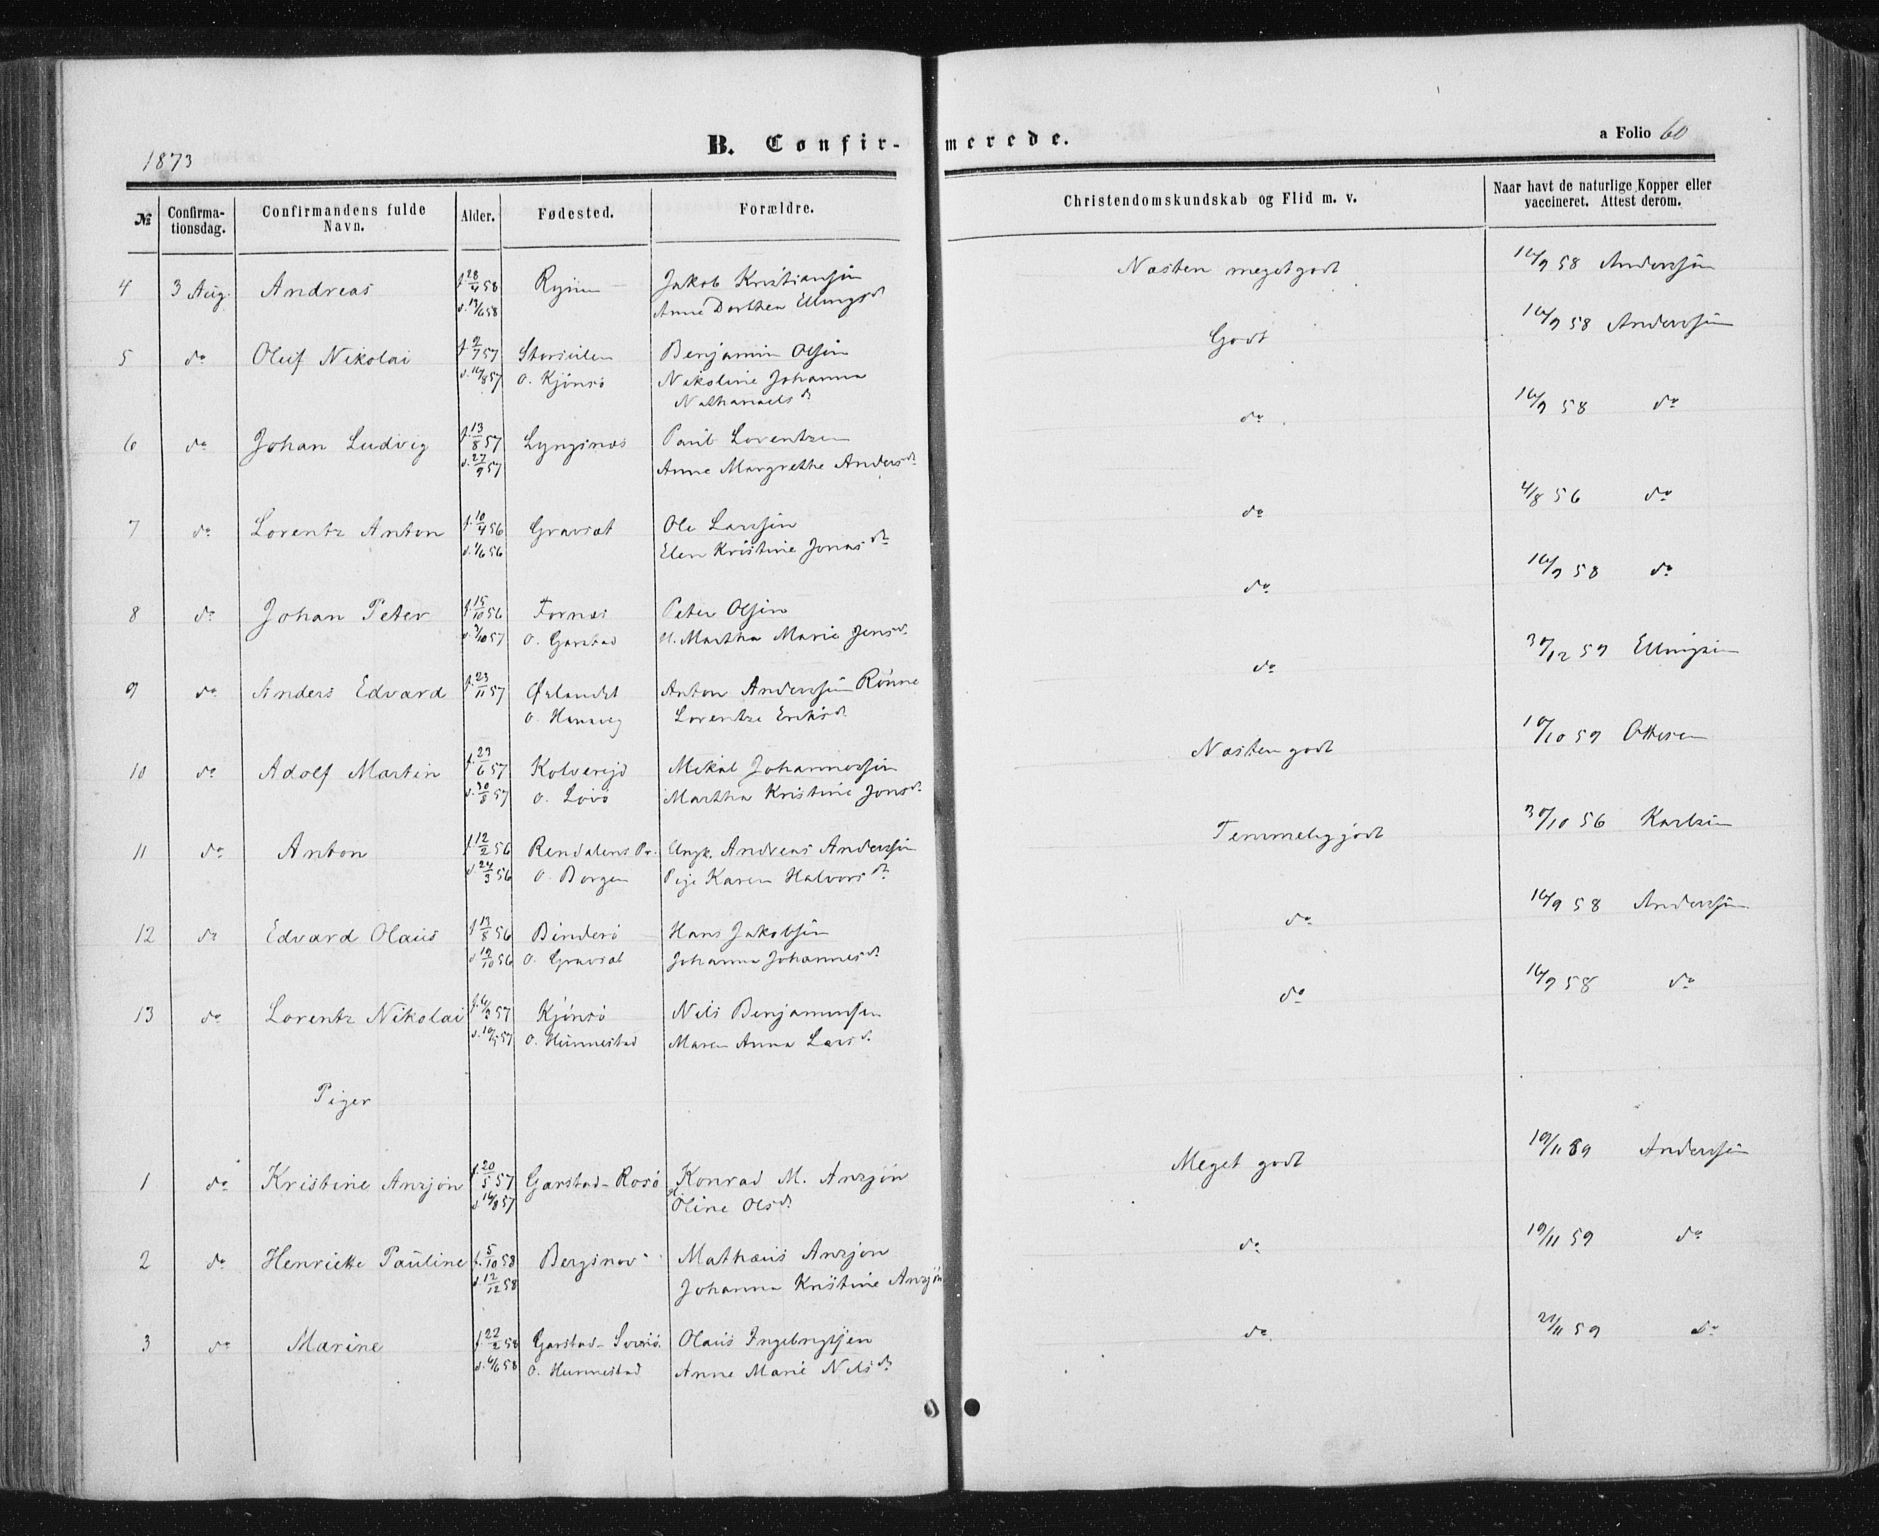 1873
B. Confir-merede.
a Folio 60
№ Confirma-tionsdag. Confirmandens fulde Navn. Alder. Fødested. Forældre. Christendomskundskab og Flid m. v. Naar havt de naturlige Kopper eller vaccineret. Attest derom.
4 3 Aug. Andreas f. 28/4 58 Jakob Kristiansen Næsten meget godt 16/9 58 Anderssen
d. 13/6 58 Anne Dorthea Ellingsd.
5 do Oluf Nikolai f. 2/7 57 Benjamin Olsen Godt 16/9 58 Anderssen
d. 16/8 57 o. Kjønsø Nikoline Johanna
Nathanaelsd.
6 do Johan Ludvig f. 13/8 57 Lyngsnæs Paul Lorentzen do 16/9 58 do
d. 27/9 57 Anne Margrethe Andersd.
7 do Lorentz Anton f. 10/4 56 Gravsæt Ole Larssen do 4/8 56 do
d. 1/6 56 Elen Kristine Jonasd.
8 do Johan Peter f. 15/10 56 Fornæs Peter Olsen do 16/9 58 do
o. Garstad H. Martha Marie Jensd.
9 do Anders Edvard f. 23/11 57 Ørlandet Anton Anderssen Rønne do 30/12 59 Ellingsen
Lorentze Eriksd.
10 do Adolf Martin f. 23/6 57 Kolvereid Mikal Johannessen Næsten godt 10/10 59 Ottesen
d. 30/8 57 o. Lovø Martha Kristine Jonsd.
11 do Anton f. 12/2 56 Rendalens Pr. Ungk. Andreas Anderssen Temmelig godt 30/10 56 Karlsen
d. 24/3 56 o. Borgen Pige Karen Halvorsd.
12 do Edvard Olaus f. 13/8 56 Binderø Hans Jakobsen do 16/9 58 Anderssen
d. 19/10 56 o. Gravsæt Johanna Johannesd.
13 do Lorentz Nikolai f. 6/3 57 Kjønsø Nils Benjaminsen do 16/9 58 do
d. 10/5 57 o. Hunnestad Maren Anna Larsd.
Piger
1 do Kristine Anzjøn f. 20/5 57 Garstad-Rosø Konrad M. Anzjøn Meget godt 19/11 59 Anderssen
d. 16/8 57 Oline Olsd.
2 do Henriette Pauline f. 5/10 58 Bergsnov Mathæus Anzjøn do 19/11 59 do
d. 12/12 58 Johanna Kristine Anzjøn
3 do Marine f. 22/2 58 Garstad-Sversø Olaus Ingebrigtsen do 21/11 59 do
d. 6/6 58 o. Hunnestad Anne Marie Nilsd.